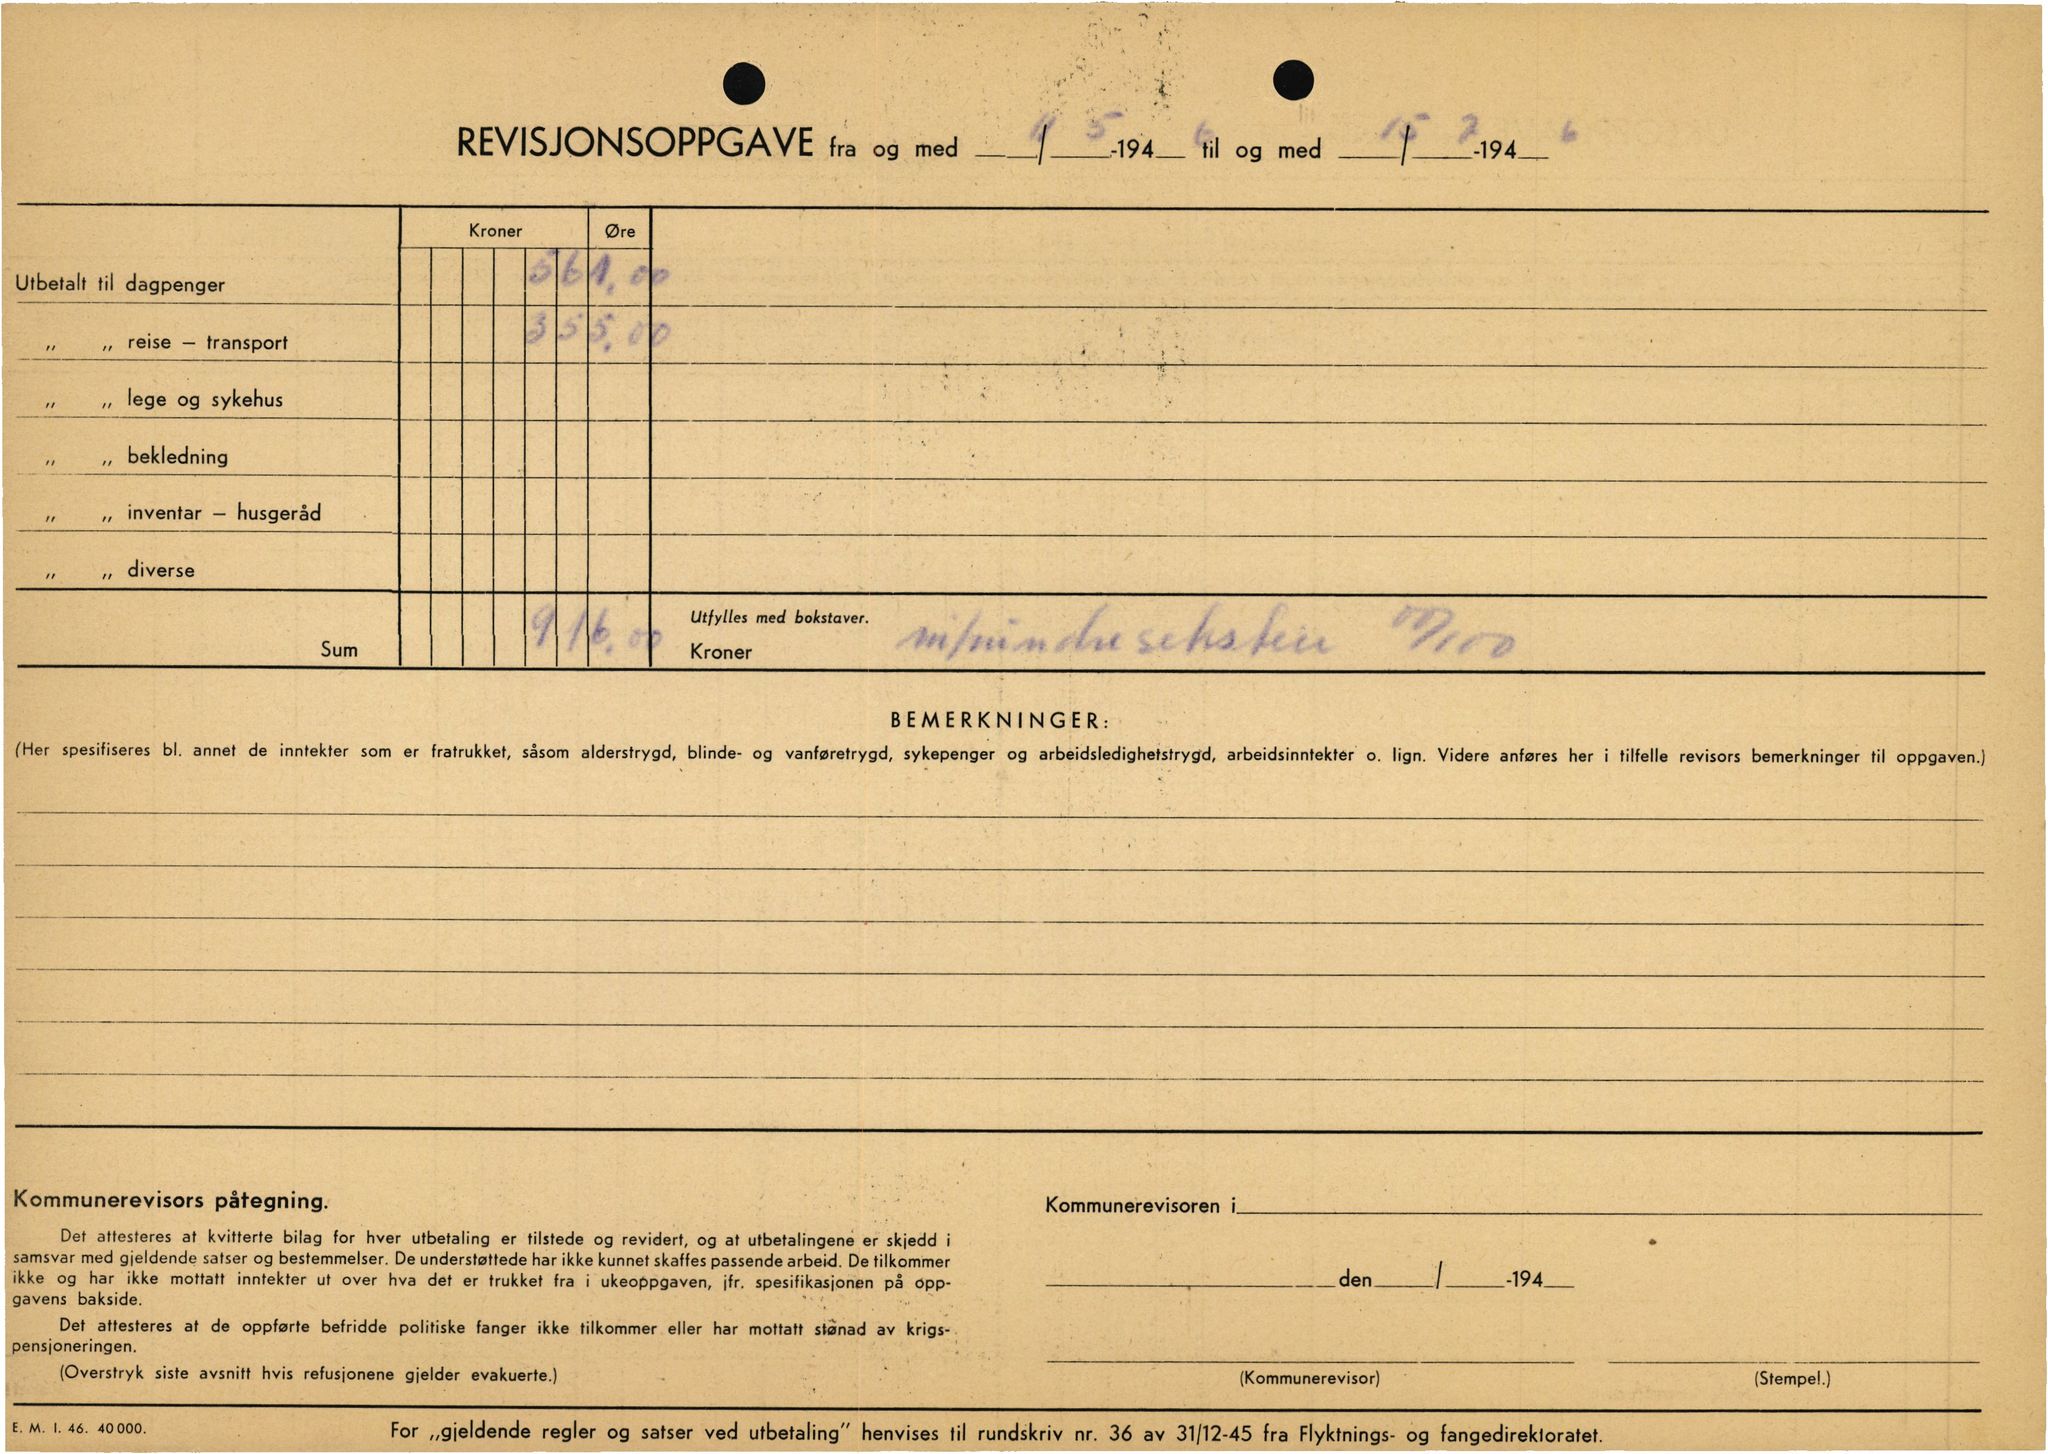 REVISJONSOPPGAVE fra og med 1/5-1946 til og med 15/7-1946
Kroner Øre
Utbetalt til dagpenger 561,00
„ „ reise – transport 355,00
„ „ lege og sykehus
„ „ bekledning
„ „ inventar – husgeråd
„ „ diverse
Sum 916,00
Utfylles med bokstaver.
Kroner nihundreseksten 00/100
BEMERKNINGER:
(Her spesifiseres bl. annet de inntekter som er fratrukket, såsom alderstrygd, blinde- og vanføretrygd, sykepenger og arbeidsledighetstrygd, arbeidsinntekter o. lign. Videre anføres her i tilfelle revisors bemerkninger til oppgaven.)
Kommunerevisors påtegning.
Det attesteres at kvitterte bilag for hver utbetaling er tilstede og revidert, og at utbetalingene er skjedd i
samsvar med gjeldende satser og bestemmelser. De understøttede har ikke kunnet skaffes passende arbeid. De tilkommer
ikke og har ikke mottatt inntekter ut over hva det er trukket fra i ukeoppgaven, jfr. spesifikasjonen på opp-
gavens bakside.
Det attesteres at de oppførte befridde politiske fanger ikke tilkommer eller har mottatt stønad av krigs-
pensjoneringen.
(Overstryk siste avsnitt hvis refusjonene gjelder evakuerte.)
Kommunerevisoren i
den / -194
(Kommunerevisor) (Stempel.)
E. M. I. 46. 40 000.
For „gjeldende regler og satser ved utbetaling” henvises til rundskriv nr. 36 av 31/12-45 fra Flyktnings- og fangedirektoratet.